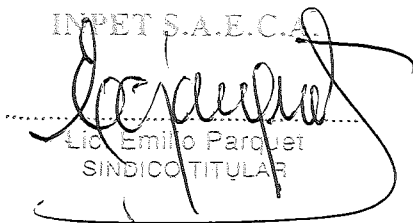 INPET S.A.E.C.A.
Lic. Emilio Parquet
SINDICO TITULAR